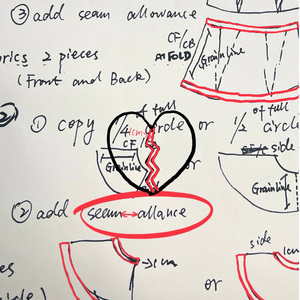 ③ add seam allowance
CF/CB
at FOLD
Grain line
rics 2 pieces
(Front and Back)
of full
of full
② ① copy 1/4 circle or 1/2 circle
1cm
CF/
side
Grain line
or
Grain line
② add seam↔allance
side
1cm
→1cm
es
or